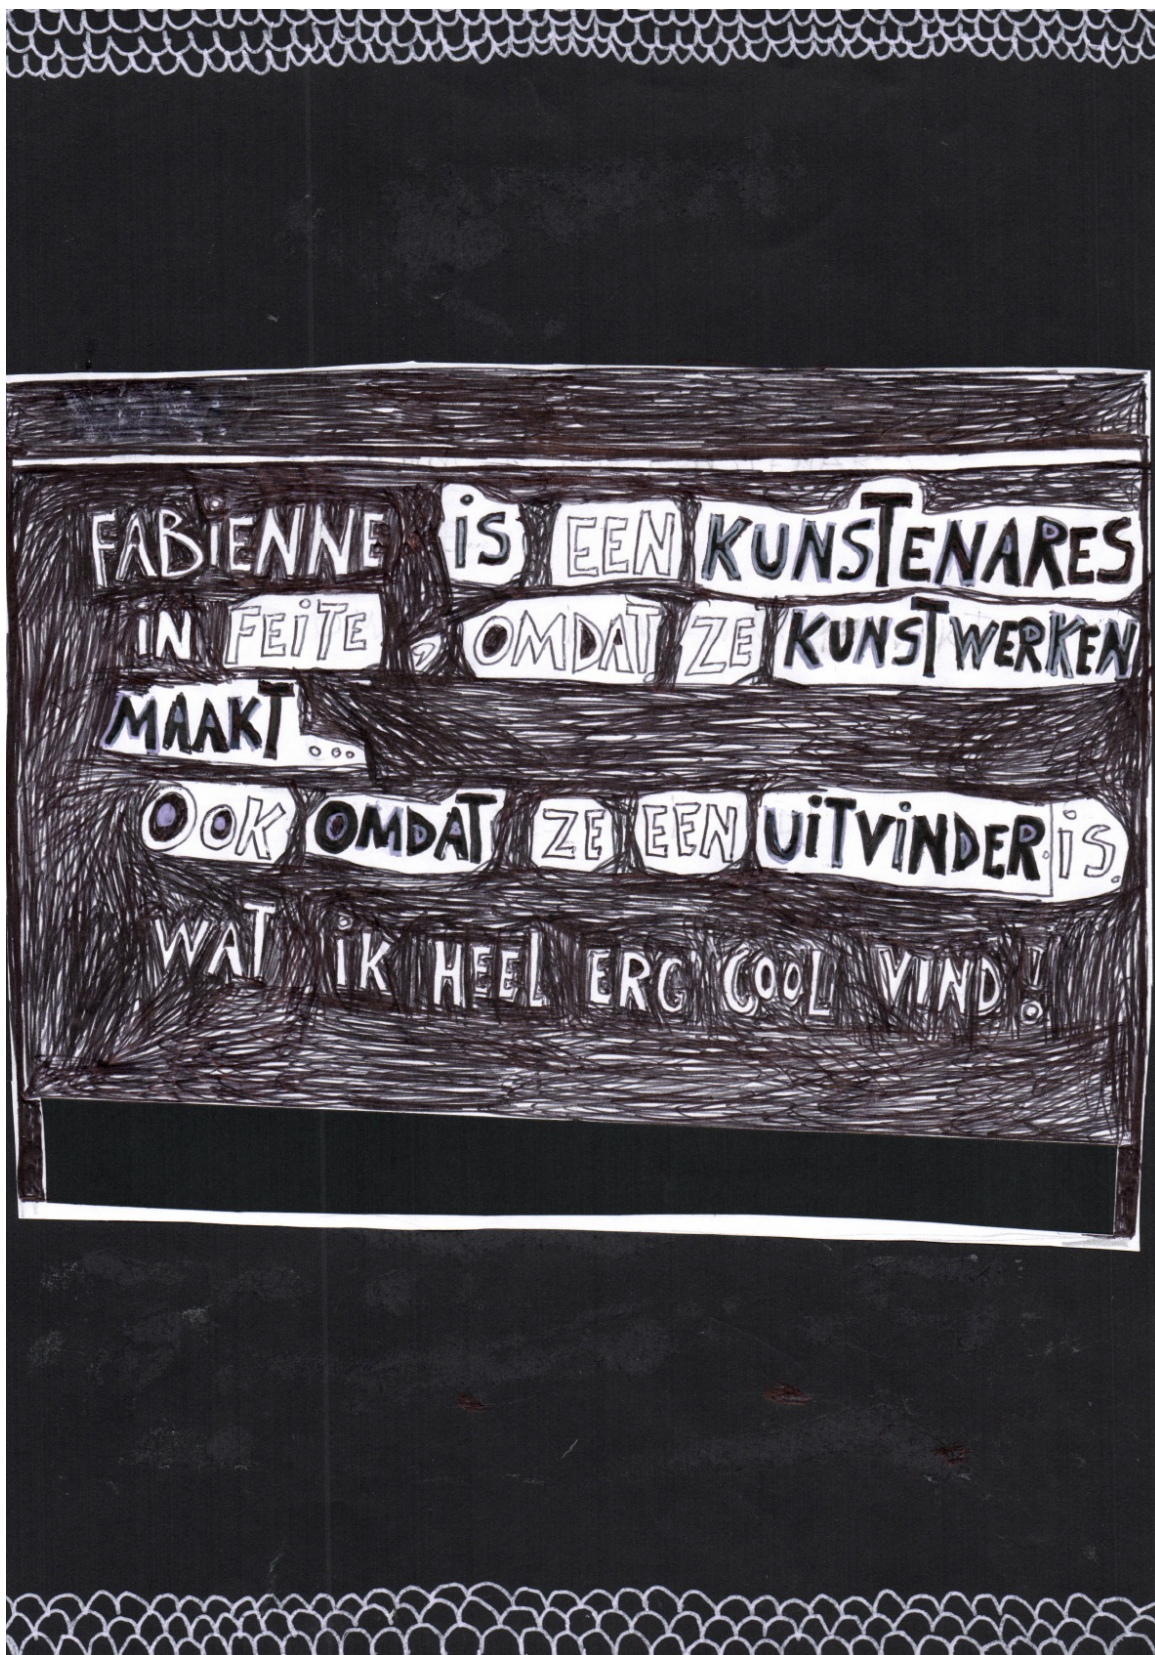 FABiENNE iS EEN KUNSTENARES
iN FEiTE, OMDAT ZE KUNSTWERKEN
MAAKT...
OOK OMDAT ZE EEN UiTViNDER iS.
WAT iK HEEL ERG COOL ViND!